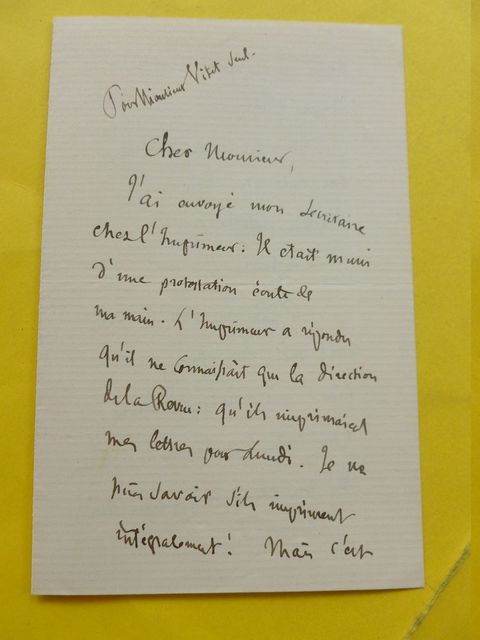 Pour Monsieur Vitet seul.
Cher Monsieur,
J'ai envoyé mon secrétaire
chez l'Imprimeur : Il était muni
d'une protestation écrite de
ma main. L'Imprimeur a répondu
qu'il ne connaissait que la direction
de la Revue : qu'ils imprimaient
mes lettres pour Lundi. Je ne
puis savoir s'ils impriment
intégralement ! Mais c'est